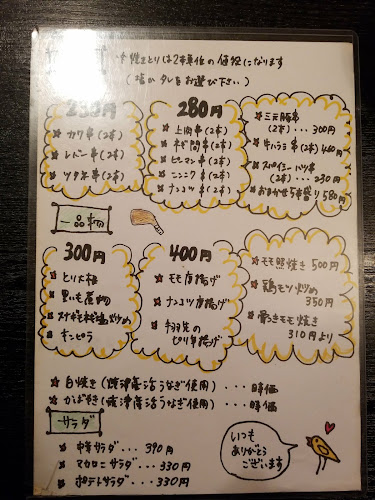 ※焼きとりは2本単位の値段になります
(塩かタレをお選び下さい)
230円
カワ串(2本)
レバー串(2本)
ツクネ串(2本)
280円
上肉串(2本)
ネギ間串(2本)
ピーマン串(2本)
ニンニク串(2本)
ナンコツ串(2本)
三元豚串
(2本)・・・300円
牛ハラミ串(2本)460円
スパイシーハツ串
(2本)・・・290円
おまかせ5本盛り580円
一品物
300円
とり大根
里いも煮物
キンピラ
400円
モモ唐揚げ
ナンコツ唐揚げ
手羽先の
ピリ辛揚げ
モモ照焼き 500円
鶏モツ炒め
350円
骨つきモモ焼き
310円より
白焼き(焼津産活うなぎ使用)・・・時価
かばやき(焼津産活うなぎ使用)・・・時価
サラダ
中華サラダ・・・390円
マカロニサラダ・・・330円
ポテトサラダ・・・330円
いつも
ありがとう
ございます